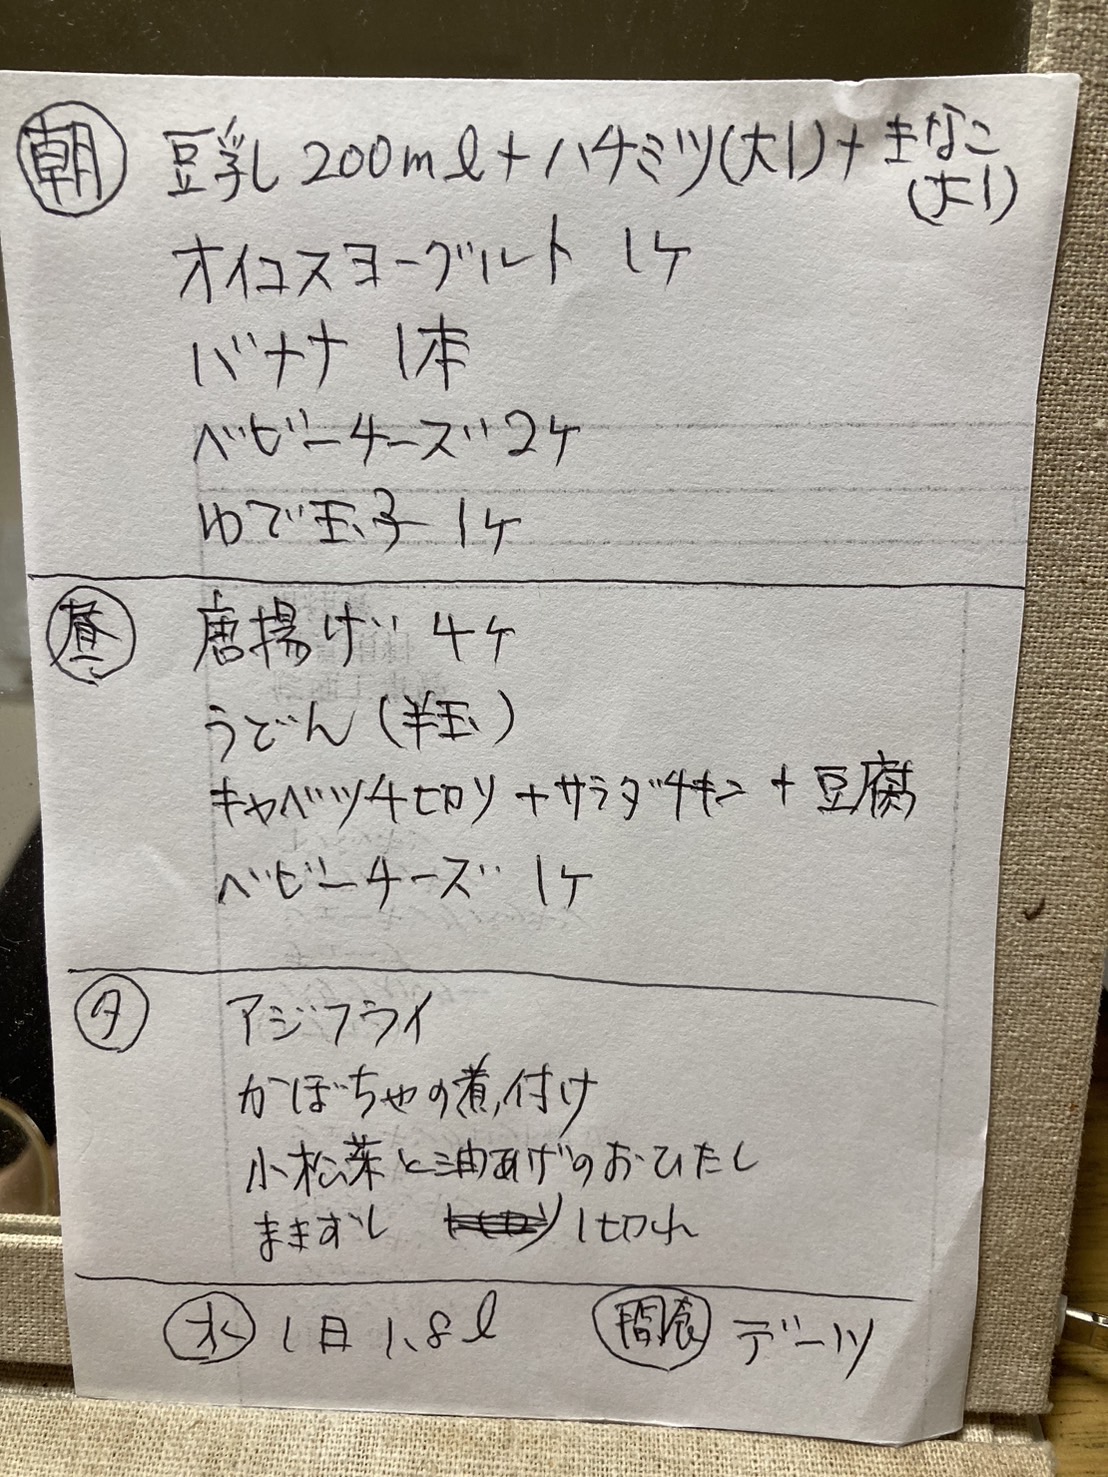 朝 豆乳 200ml+ハチミツ(大1)+きなこ(大1)
オイコスヨーグルト 1ケ
バナナ 1本
ベビーチーズ 2ケ
ゆで玉子 1ケ
昼 唐揚げ 4ケ
うどん(半玉)
キャベツ千切り+サラダチキン+豆腐
ベビーチーズ 1ケ
夕 アジフライ
かぼちゃの煮付け
小松菜と油あげのおひたし
ますずし 1切れ
水 1日 1.8l 間食 デーツ